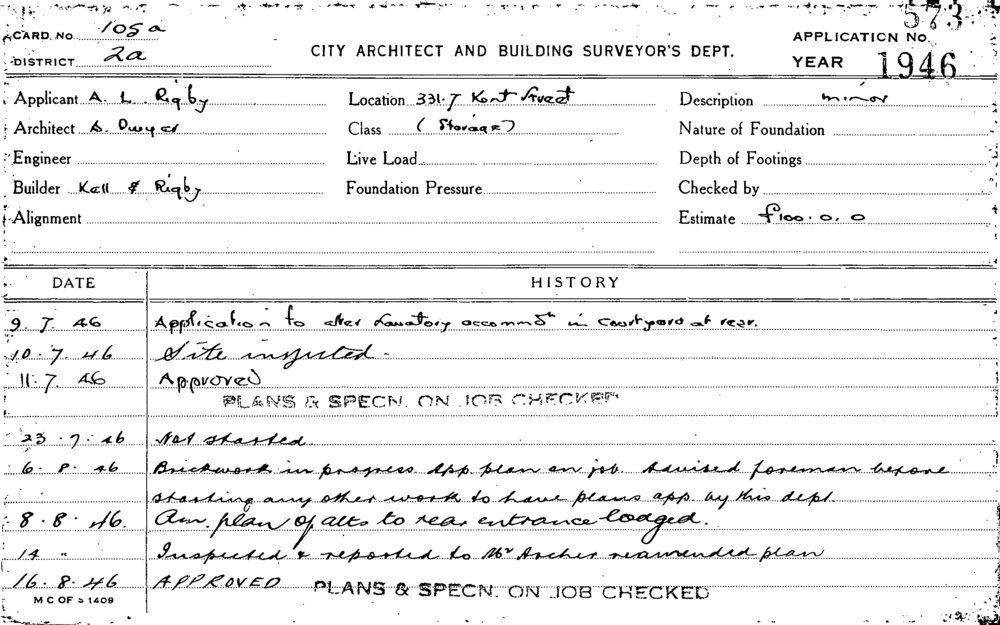 573
CARD No 105a
APPLICATION No.
DISTRICT 2a
CITY ARCHITECT AND BUILDING SURVEYOR'S DEPT.
YEAR 1946
Applicant A. L. Rigby Location 331·7 Kent Street Description minor
Architect S. Dwyer Class (Storage) Nature of Foundation
Engineer Live Load Depth of Footings
Builder Kell & Rigby Foundation Pressure Checked by
Alignment Estimate £100.0.0
DATE HISTORY
9. 7. 46 Application to alter Lavatory accommdn in courtyard at rear.
10. 7. 46 Site inspected.
11. 7. 46 Approved
PLANS & SPECN. ON JOB CHECKED
23. 7. 46 Not started.
6. 8. 46 Brickwork in progress App. plan on job. Advised foreman before
starting any other work to have plans app. by this dept
8. 8. 46. Am. plan of alts to rear entrance lodged.
14 " Inspected & reported to Mr Archer re amended plan
16. 8. 46 APPROVED PLANS & SPECN. ON JOB CHECKED
M C OF S 1409